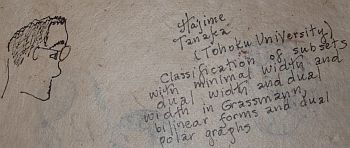 Hajime
Tanaka
(Tohoku University)
Classification of subsets
with minimal width and
dual width and dual
width in Grassmann,
bilinear forms and dual
polar graphs